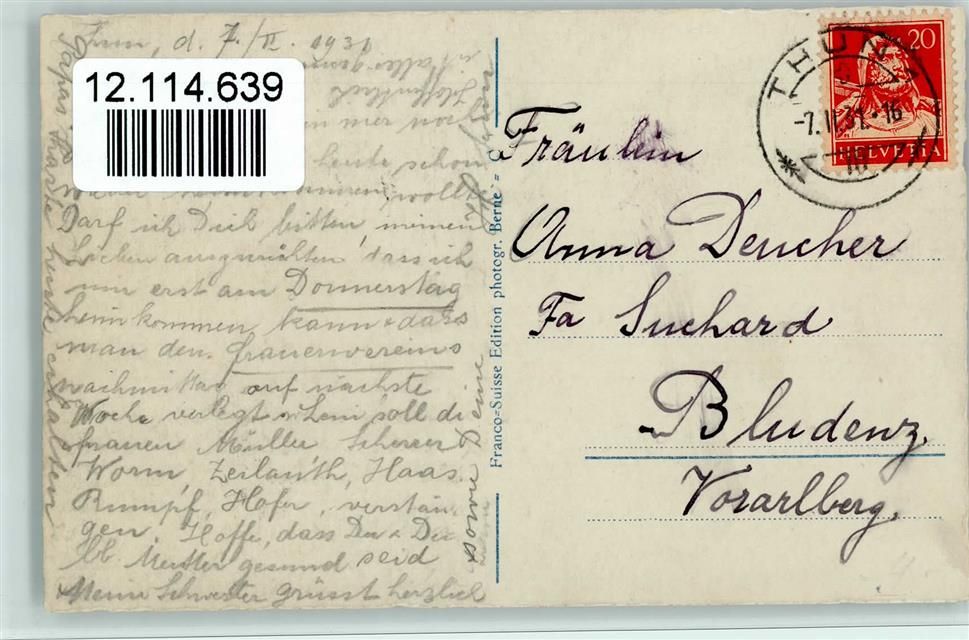 Thun, d. 7./II. 1931
12.114.639
heute schon
Darf ich Dich bitten, meinen
Lieben auszurichten, dass ich
nun erst am Donnerstag
heimkommen kann & dass
man den Frauenvereins
nachmittag auf nächste
Woche verlegt. Leni soll die
Frauen Müller, Scherrer
Worm, Zeilanth, Haas
Rumpf, Hofer, verstän-
gen. Hoffe, dass Du & Die
lb. Mutter gesund seid
Meine Schwester grüsst herzlich
sowie Deine
Papas Karte heute erhalten
Franco=Suisse Edition photogr. Berne
THUN
-7.II.31.-16
20
HELVETIA
Fräulein
Anna Deucher
Fa Suchard
Bludenz.
Vorarlberg.